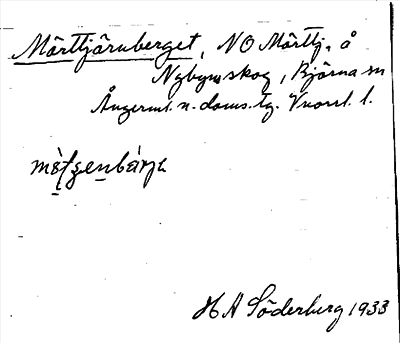 Mårttjärnberget, NO Mårttj. å
Nybyns skog, Björna sn
Ångerml. n. doms. tg. Vnorrl. l.
H A Söderberg 1933